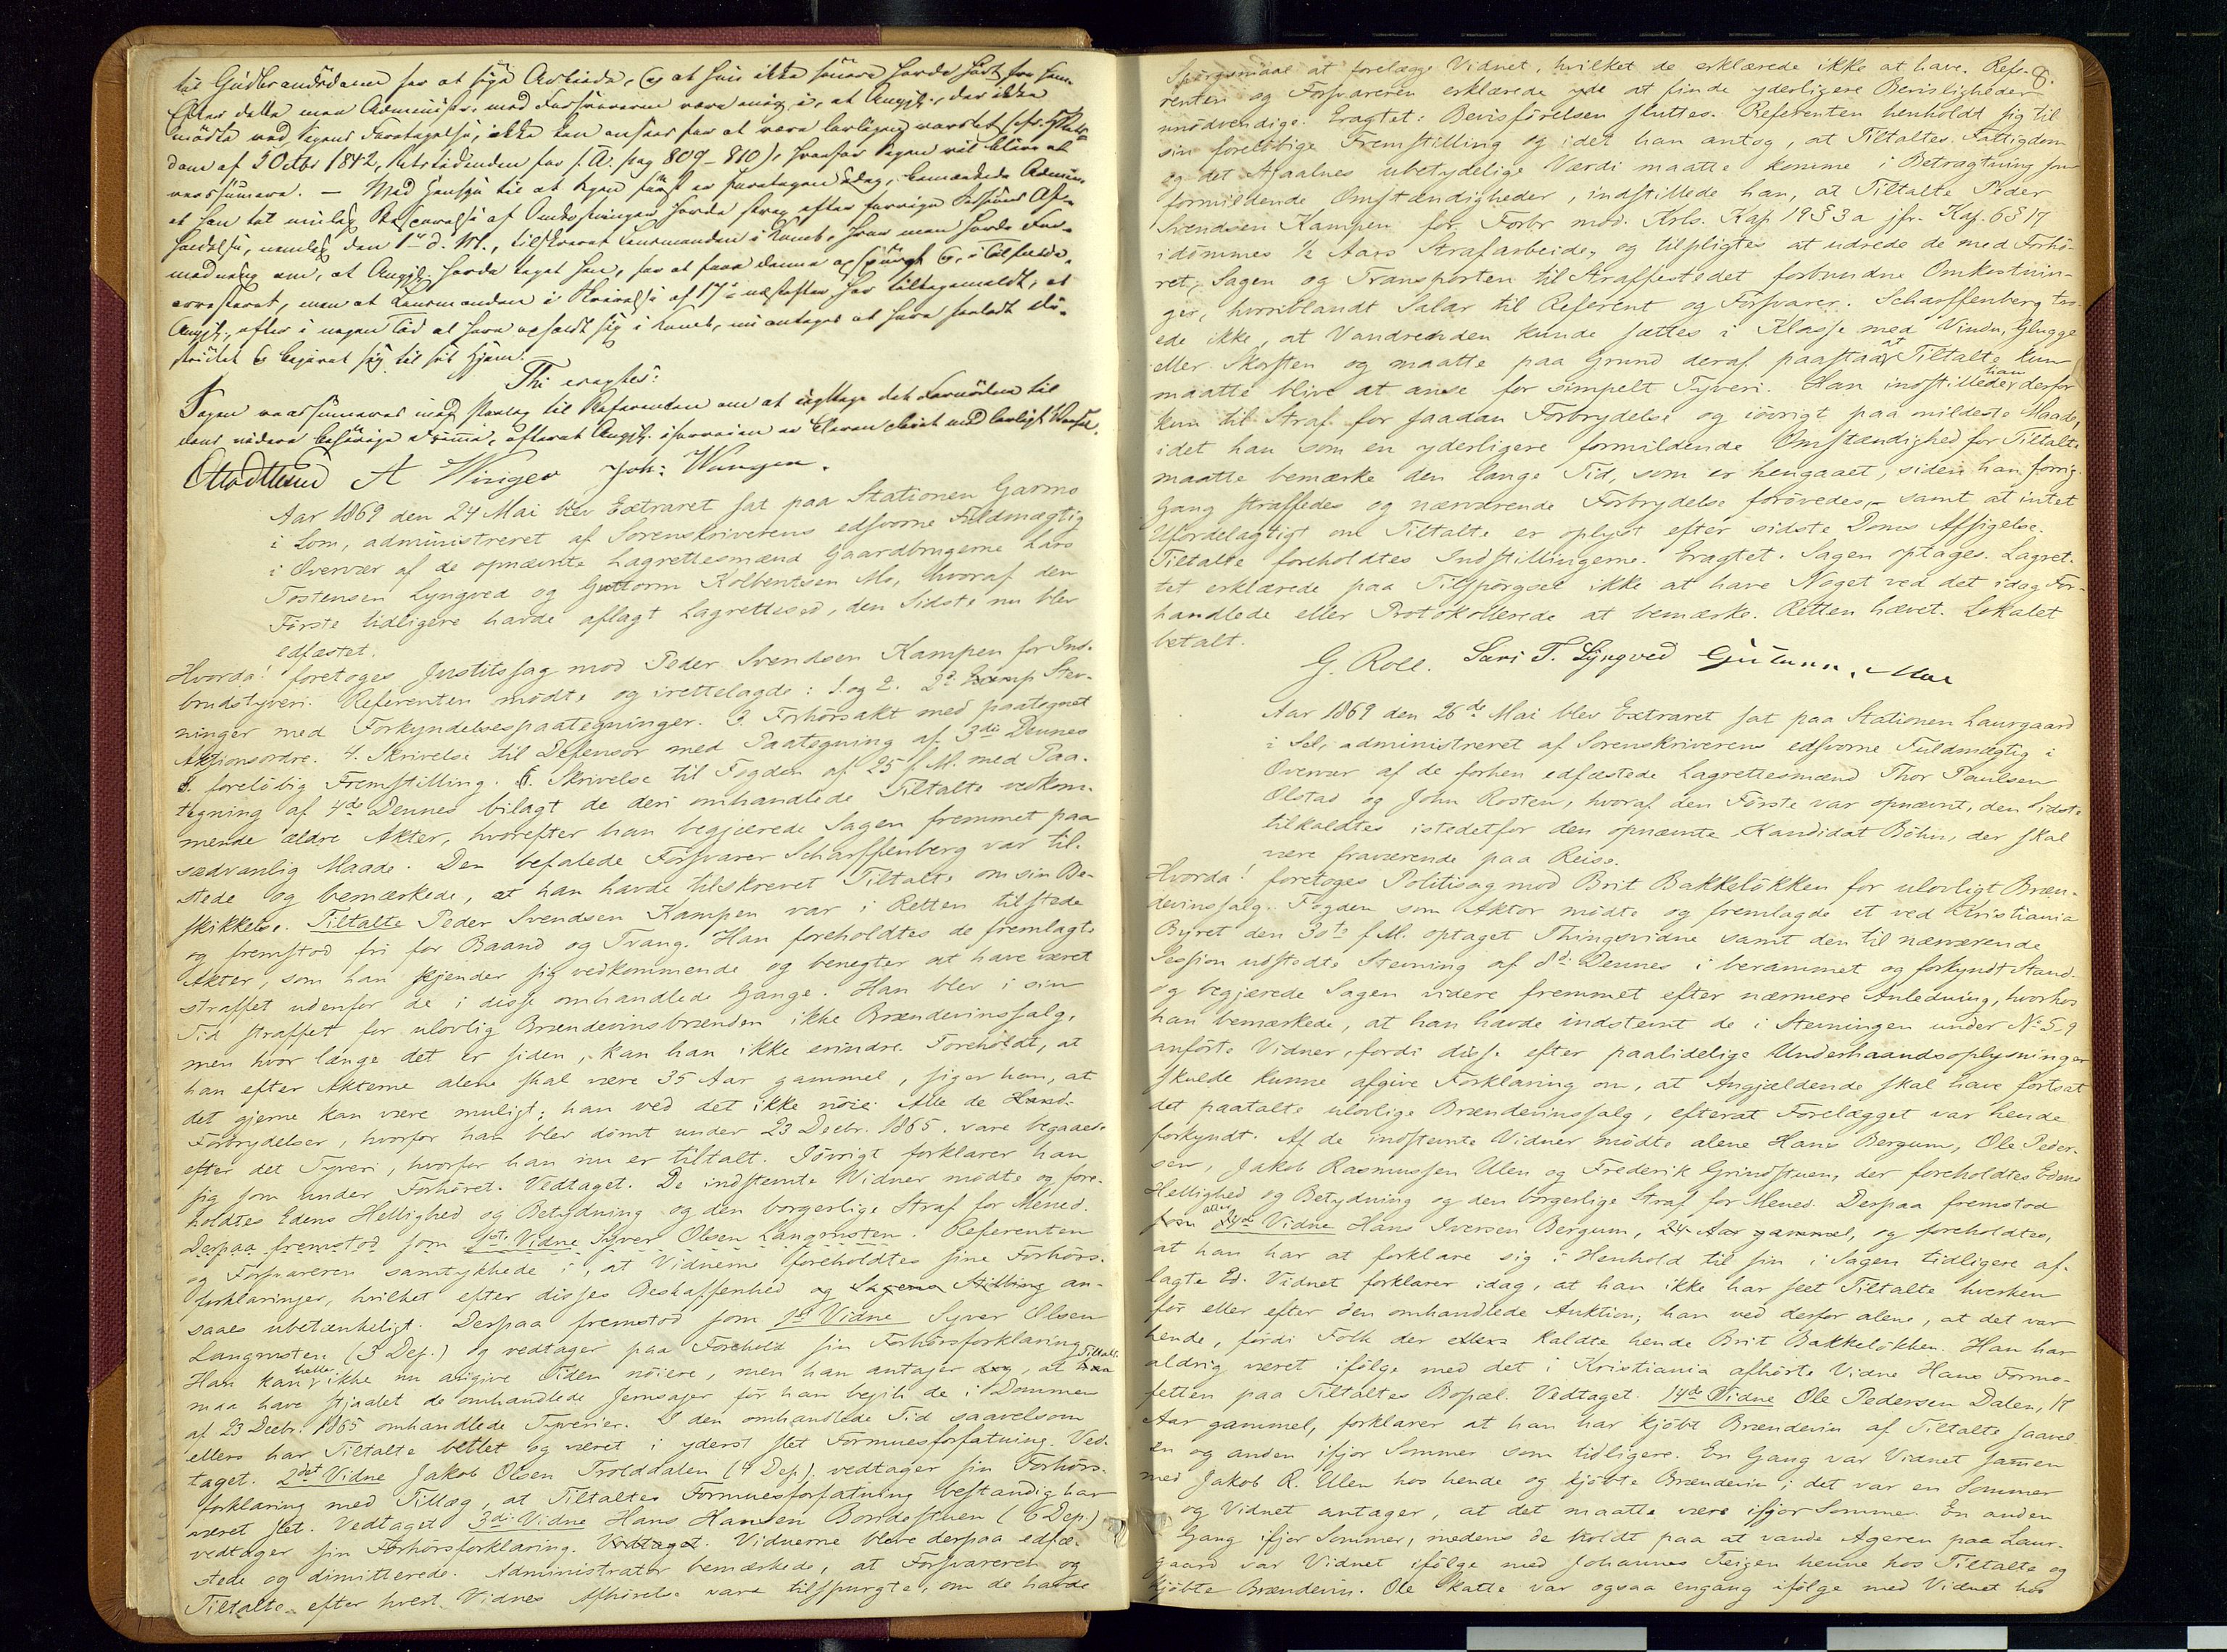 til Gudbrandsdalen for at søge Arbeide, og at hun ikke senere havde hørt fra ham.
Efter dette man Administr. med Forsvareren være enig i, at Angjl., der ikke
mødte ved Sagens Foretagelse, ikke kan ansees for at være lovligen varslet
dom af 5 Octbr 1842, Retstidenden for s. A. pag 809-810), hvorfor Sagen vil blive at
udsættes. — Med Hensyn til at Sagen først er foretagen idag, bemærkede Admin.
at han
holdelse, nemlig den 1ste d. M., tilskrevet Lensmanden i
med
arresteret, men at Lensmanden i Skrivelse af 17de næstefter har tilbagemeldt, at
Angjl., efter i nogen Tid at have opholdt sig i
striktet og begivet sig til sit Hjem.
Thi eragtes:
Sagen
A Winger Joh: Wangen.
Aar 1869 den 24 Mai blev Extraret sat paa Stationen Garmo
i Lom, administreret af Sorenskriverens edsvorne Fuldmægtig
i Overvær af de opnævnte Lagrettesmænd Gaardbrugerne Lars
Tostensen Lyngved og Guttorm Kolbentsen Mo, hvoraf den
Første tidligere havde aflagt Lagrettesed, den Sidste nu blev
edfæstet.
Hvorda! foretoges Justitssag mod Peder Svendsen Kampen for Ind-
brudstyveri. Referenten mødte og irettelagde: 1. og 2. 2de Stev-
ninger med Forkyndelsespaategninger. 3 Forhørsakt med paategnet
Aktionsordre. 4. Skrivelse til Defensor med Paategning af 3die Dennes
5. foreløbig Fremstilling. 6. Skrivelse til Fogden af 25 f. M. med Paa-
tegning af 4de Dennes bilagt de deri omhandlede Tiltalte vedkom-
mende ældre Akter, hvorefter han begjærede Sagen fremmet paa
sædvanlig Maade. Den befalede Forsvarer Scharffenberg var til-
stede og bemærkede, at han havde tilskrevet Tiltalte om sin Be-
skikkelse. Tiltalte Peder Svendsen Kampen var i Retten tilstede
og fremstod fri for Baand og Tvang. Han foreholdtes de fremlagte
Akter, som han kjender sig vedkommende og benegter at have været
straffet udenfor de i disse omhandlede Gange. Han blev i sin
Tid straffet for ulovlig Brændevinsbrænden ikke Brændevinssalg,
men hvor længe det er siden, kan han ikke erindre. Foreholdt, at
han efter Akterne alene skal være 35 Aar gammel, siger han, at
det gjerne kan være muligt; han ved det ikke nøie. Alle de
Forbrydelser, hvorfor han blev dømt under 23 Decbr. 1865. vare begaaede
efter det Tyveri, hvorfor han nu er tiltalt. Iøvrigt forklarer han
sig som under Forhøret. Vedtaget. De indstevnte Vidner mødte og fore-
holdtes Edens Hellighed og Betydning og den borgerlige Straf for Mened.
Derpaa fremstod som 1ste Vidne Syver Olsen Langmsten. Referenten
og Forsvareren samtykkede i, at Vidnerne foreholdtes sine Forhørs-
forklaringer, hvilket efter disses Beskaffenhed og Sagens Stilling an-
saaes ubetænkeligt. Derpaa fremstod som 1ste Vidne Syver Olsen
Langmsten (3 Dep.) og vedtager paa Forehold sin Forhørsforklaring
Han kan heller ikke nu angive Tiden nøiere, men han antager, at Tiltalte
maa have stjaalet de omhandlede Jernsager før han begik de i Dommen
af 23 Decbr. 1865 omhandlede Tyverier. I den omhandlede Tid saavelsom
ellers har Tiltalte bettlet og været i yderst slet Formuesforfatning. Ved-
taget. 2det Vidne Jakob Olsen Trolddalen (4 Dep). vedtager sin Forhørs-
forklaring med Tillæg, at Tiltaltes Formuesforfatning bestandig har
været slet. Vedtaget. 3die Vidne Hans Hansen Bordestuen (6 Dep.)
vedtager sin Forhørsforklaring. Vedtaget. Vidnerne bleve derpaa edfæ-
stede og dimitterede. Administrator bemærkede, at Forsvareren og
Tiltalte efter hvert Vidnes Afhørelse vare tilspurgte, om de havde
8.
Spørgsmaal at forelægge Vidnet, hvilket de erklærede ikke at have. Refe-
renten og Forsvareren erklærede yde at finde yderligere Bevisligheder
unødvendige. Eragtet: Bevisførelsen sluttes. Referenten henholdt sig til
sin foreløbige Fremstilling og idet han antog, at Tiltaltes Fattigdom
og det Stjaalnes ubetydelige Værdi maatte komme i Betragtning som
formildende Omstændigheder, indstillede han, at Tiltalte Peder
Svendsen Kampen for Forbr mod. Krls. Kap. 19 § 3 a jfr. Kap. 6 § 17
idømmes ½ Aars Strafarbeide, og tilpligtes at udrede de med Forhø-
ret, Sagen og Transporten til Straffestedet forbundne Omkostnin-
ger, hvoriblandt Salær til Referent og Forsvarer. Scharffenberg tro-
ede ikke, at Vandrenden kunde sættes i Klasse med Vindu, Glugge
eller Skorsten og maatte paa Grund deraf paastaa, at Tiltalte kun
maatte blive at anse for simpelt Tyveri. Han indstillede han derfor
kun til Straf for saadan Forbrydelse og iøvrigt paa mildeste Maade,
idet han som en yderligere formildende Omstændighed for Tiltalte
maatte bemærke den lange Tid, som er hengaaet, siden han forrige
Gang straffedes og nærværende Forbrydelse forøvedes, samt at intet
Ufordelagtigt om Tiltalte er oplyst efter sidste Doms Afsigelse.
Tiltalte foreholdtes Indstillingerne. Eragtet. Sagen optages. Lagret-
tet erklærede paa Tilspørgsel ikke at have Noget ved det idag For-
handlede eller Protokollerede at bemærke. Retten hævet. Lokalet
betalt.
G. Roll. Lars T. Lyngved Gutorm. Moe
Aar 1869 den 26de Mai blev Extraret sat paa Stationen Laurgaard
i Sel, administreret af Sorenskriverens edsvorne Fuldmægtig i
Overvær af de forhen edfæstede Lagrettesmænd Thor Paulsen
Olstad og John Rosten, hvoraf den Første var opnævnt, den Sidste
tilkaldtes istedetfor den opnævnte Kandidat Böhn, der skal
være fraværende paa Reise.
Hvorda! foretoges Politisag mod Brit Bakkeløkken for ulovligt Bræn-
devinssalg. Fogden som Aktor mødte og fremlagde et ved Kristiania
Byret den 30te f. M. optaget Thingsvidne samt den til nærværende
Session udstedte Stevning af 8de Dennes i berammet og forkyndt Stand.
og begjærede Sagen videre fremmet efter nærmere Anledning, hvorhos
han bemærkede, at han havde indstevnt de i Stevningen under No 5-9
anførte Vidner, fordi disse efter paalidelige Underhaandsoplysninger
skulde kunne afgive Forklaring om, at Angjældende skal have fortsat
det paatalte ulovlige Brændevinssalg, efterat Forelægget var hende
forkyndt. Af de indstevnte Vidner mødte alene Hans Bergum, Ole Peder-
sen, Jakob Rasmussen Ulen og Frederik Grindstuen, der foreholdtes Edens
Hellighed og Betydning og den borgerlige Straf for Mened. Derpaa fremstod
Vidne Hans Iversen Bergum, 24 Aar gammel, og foreholdtes,
at han har at forklare sig i Henhold til sin i Sagen tidligere af-
lagte Ed. Vidnet forklarer idag, at han ikke har seet Tiltalte hverken
før eller efter den omhandlede Auktion; han ved derfor alene, at det var
hende, fordi Folk der ellers kaldte hende Brit Bakkeløkken. Han har
aldrig været ifølge med det i Kristiania afhørte Vidne Hans Formo-
fetten paa Tiltaltes Bopæl. Vedtaget. 14de Vidne Ole Pedersen Dalen, 17
Aar gammel, forklarer at han har kjøbt Brændevin af Tiltalte saavel
en og anden ifjor Sommer som tidligere. En Gang var Vidnet sammen
med Jakob R. Ulen hos hende og kjøbte Brændevin; det var en Sommer
og Vidnet antager, at det maatte være ifjor Sommer. En anden
Gang ifjor Sommer, medens de holdt paa at vande Ageren paa Laur-
gaard var Vidnet ifølge med Johannes Teigen henne hos Tiltalte og
kjøbte Brændevin. Ole Skatte var ogsaa engang ifølge med Vidnet hos